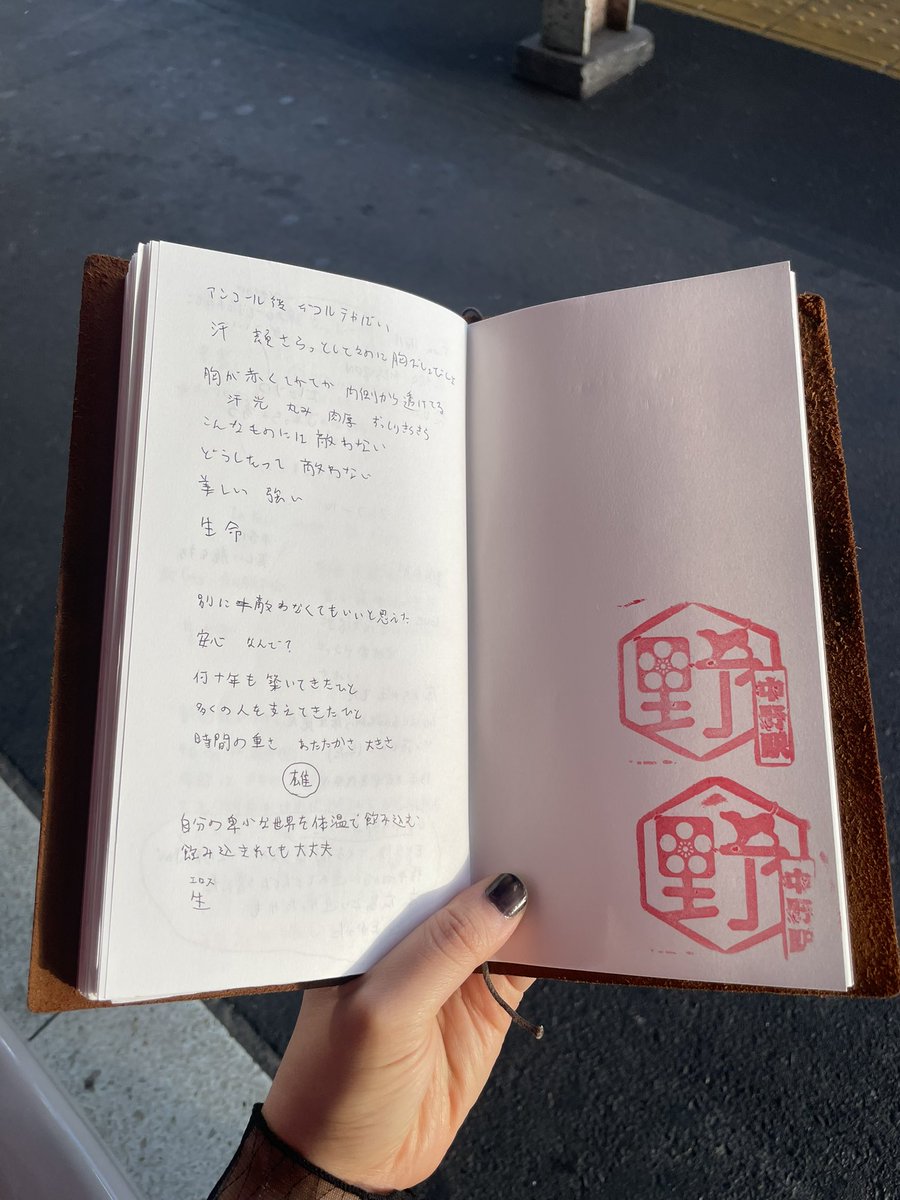 アンコール後 デコルテやばい
汗 頬さらっとしてるのに胸びしょびしょ
胸が赤くてれてか 内側から透けてる
汗 光 丸み 肉厚 ずっしりきらきら
こんなものには敵わない
どうしたって 敵わない
美しい 強い
生命
別に敵わなくてもいいと思えた
安心 なんで?
何十年も築いてきたひと
多くの人を支えてきたひと
時間の重さ あたたかさ 大きさ
雄
自分の卑小な世界を体温で飲み込む
飲み込まれても大丈夫
エロス
生
野
中野駅
野
中野駅